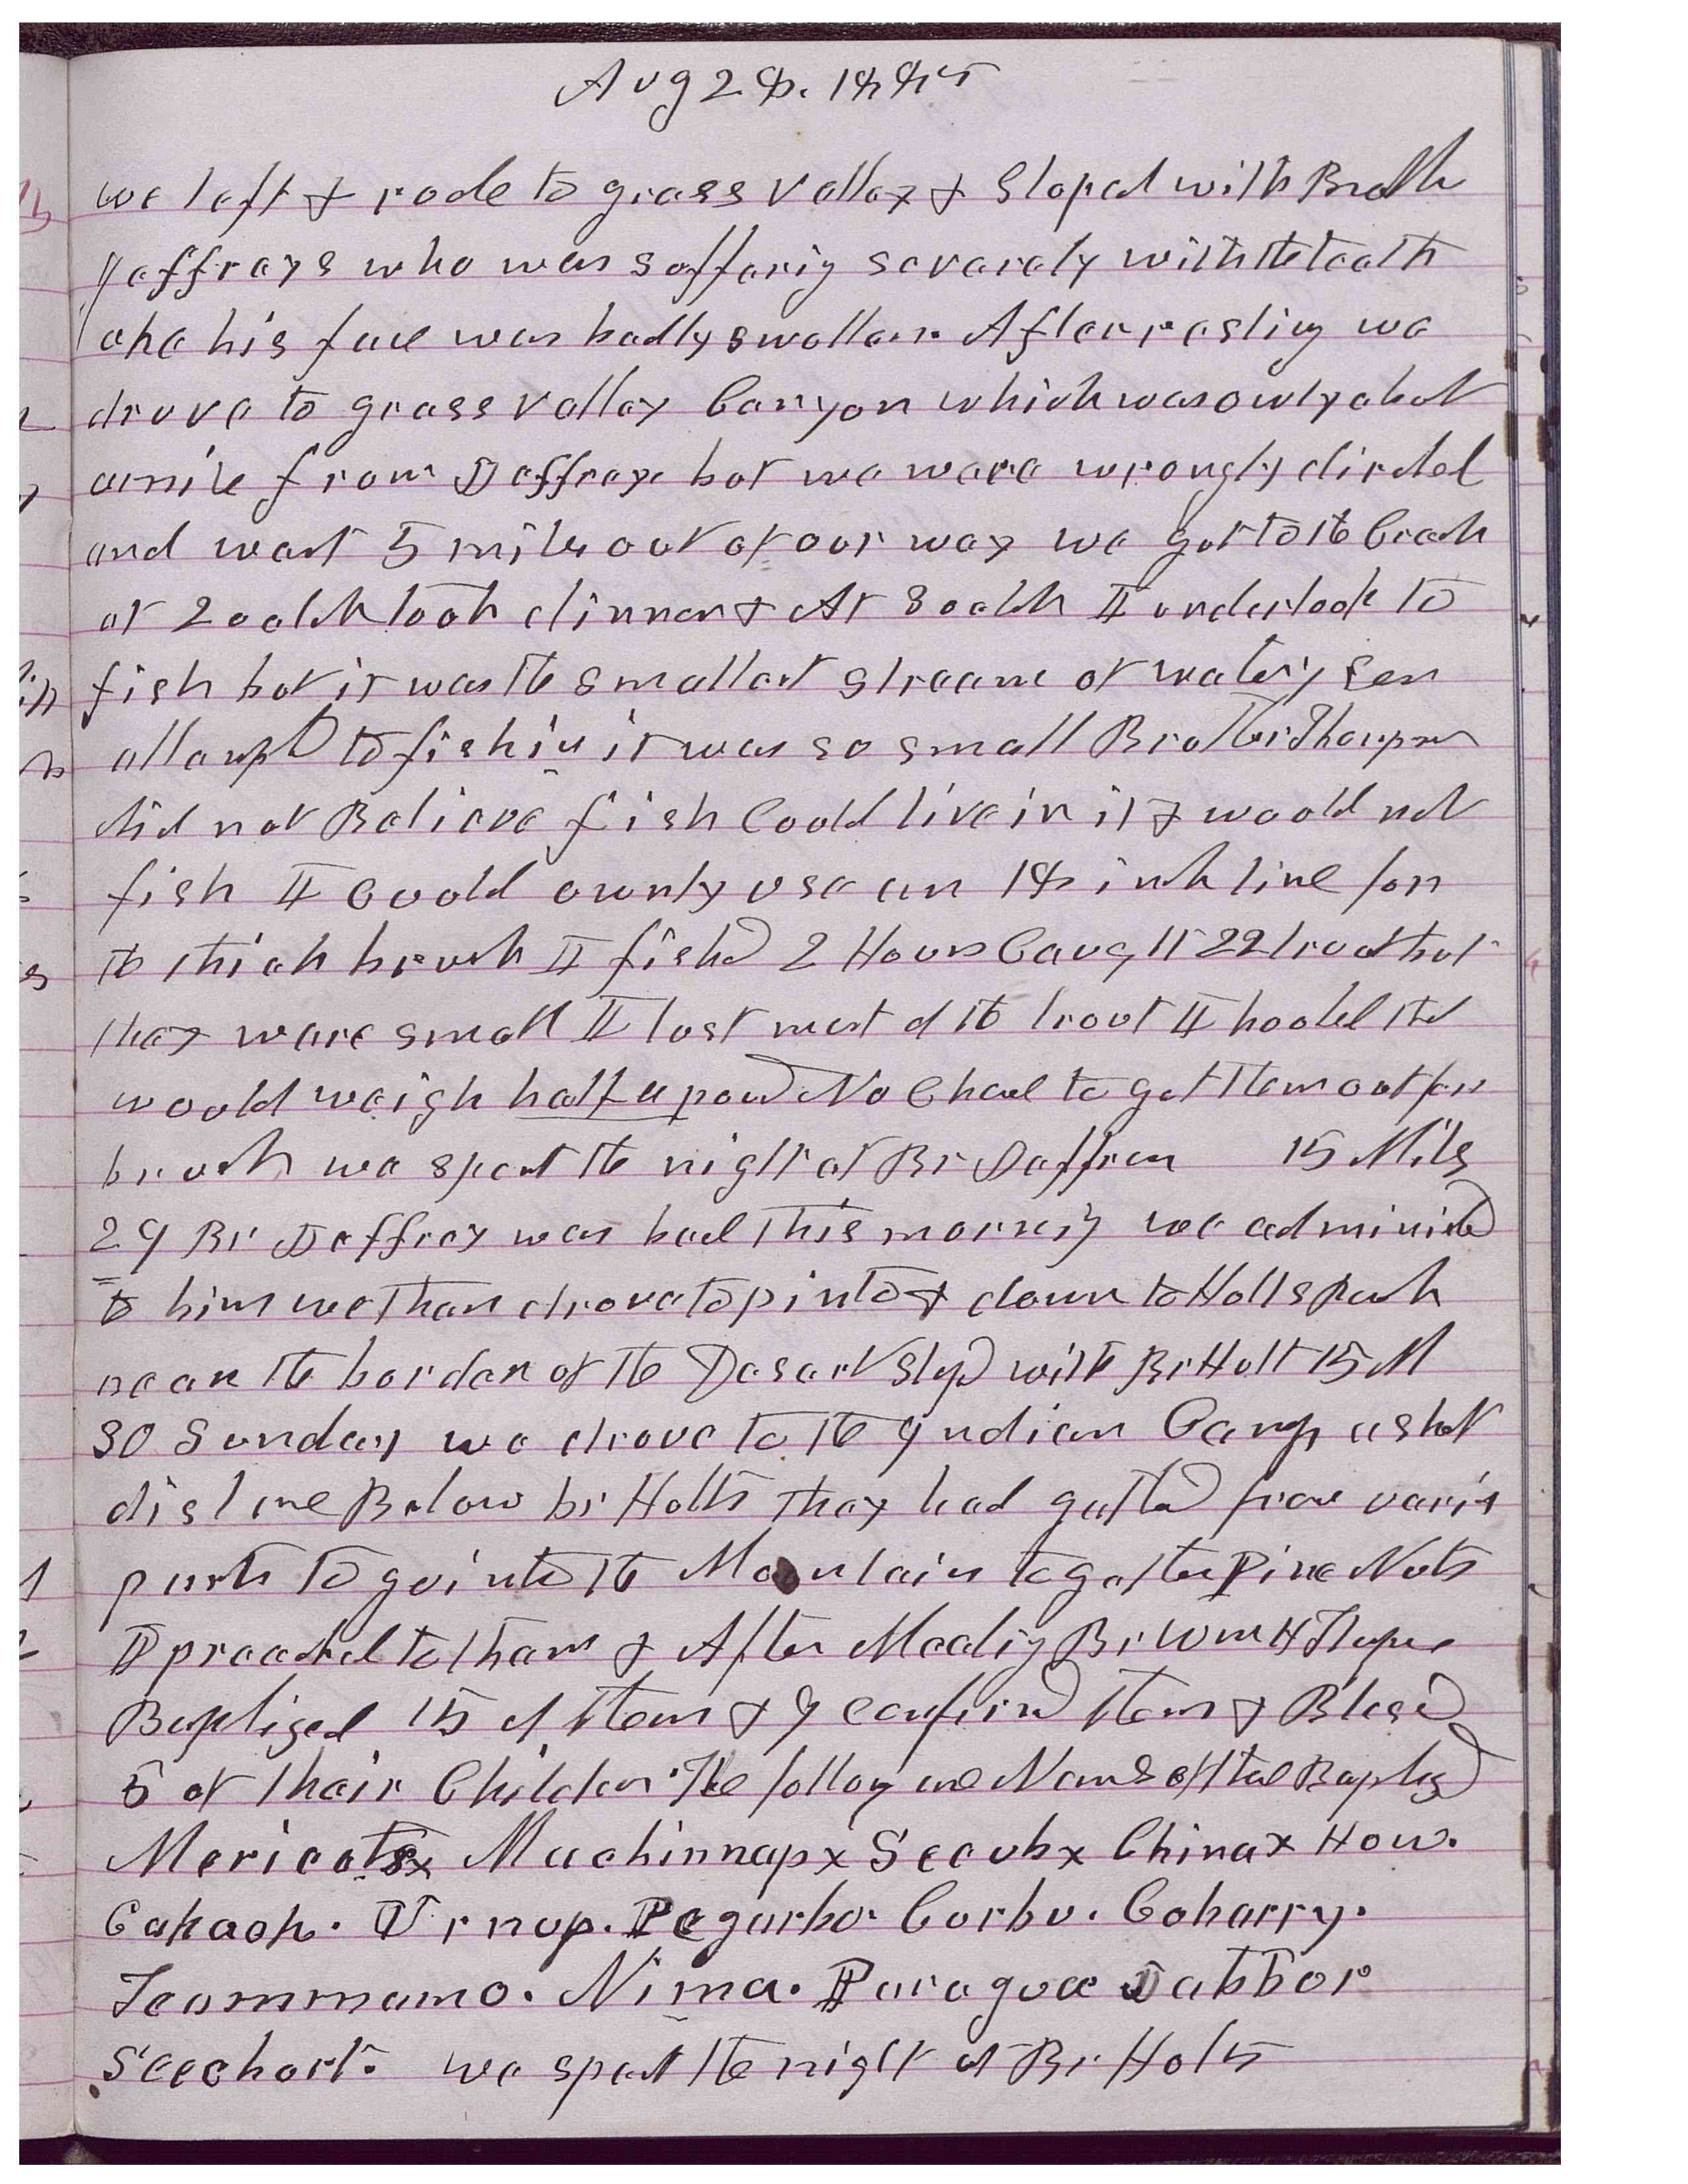 Aug 28. 1885
we left & rode to grass valley & Stoped with Broth
Jeffreys who was suffering severely with the tooth
ake his face was badly swollen. After resting we
drove to grass valley Canyon which was ownly about
a mile from Jeffreys but we were wrongly dircted
and went 5 miles out of our way we got to the Creek
at 2 oclok took dinner & At 3 oclok I undertook to
fish but it was the smallest stream of water I ever
attempted to fish in it was so small Brother Thompson
did not Believe fish Could live in it & would not
fish I Could ownly use an 18 inch line for
the thick brush I fished 2 Hours Caught 22 trout but
they were small I lost most of the trout I hooked that
would weigh half a pound No Chance to get them out for
brush we spent the night at Br Jeffreys 15 Miles
29 Br Jeffrey was bad this morning we administed
to him we then drove to pinto & down to Holts Ranch
near the border of the Desert Stoped with Br Holt 15 M
30 Sunday we drove to the Indian Camp a short
distance Below br Holts They had gatherd from varis
parts to go into the Mountain to gather Pine Nuts
I preached to them & After Meeting Br Wm H Thompson
Baptized 15 of them & I confirmd them & Blessed
5 of their Children The following are Names of those Baptized
Mericats x Muchinnap x Seeub x China x How.
Cakaok. Urnup. Pegarbo. Corbu. Cobarry.
Teommamo. Nima. Paragoce Jabbor
Seechort. we spent the night at Br Holts